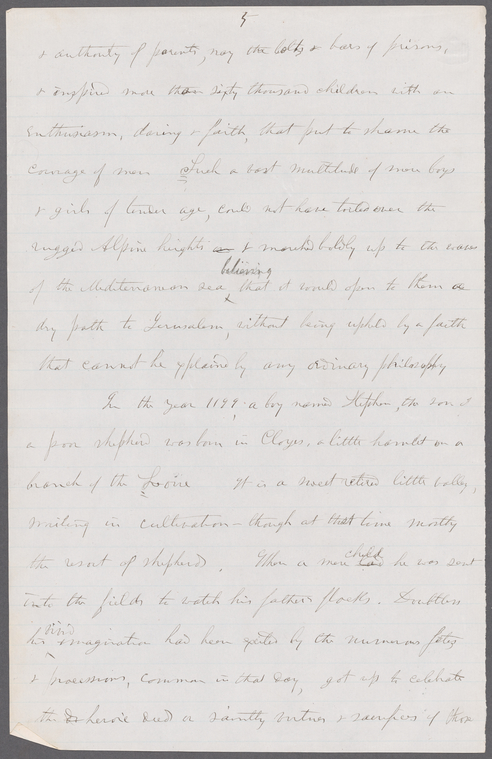 5
& authority of parents, nay the bolts & bars of prisons,
& inspired more than sixty thousand children with an
enthusiasm, daring & faith, that put to shame the
courage of men Such a vast multitude of mere boys
& girls of tender age, could not have toiled over the
rugged Alpine heights & marched boldly up to the waves
believing
of the Mediterranean sea, that it would open to them a
dry path to Jerusalem, without being upheld by a faith
that cannot be explained by any ordinary philosophy
In the year 1199, a boy named Stephen, the son of
a poor shepherd was born in Cloyes, a little hamlet on a
branch of the Loire It is a sweet retired little valley,
in cultivation - though at that time mostly
the resort of shepherds. When a mere
child
he was sent
into the fields to watch his fathers flocks. Doubtless
vivid
his imagination had been excited by the numerous fetes
& processions, common in that day, got up to celebrate
the heroic deeds or saintly virtues & sacrifices of those